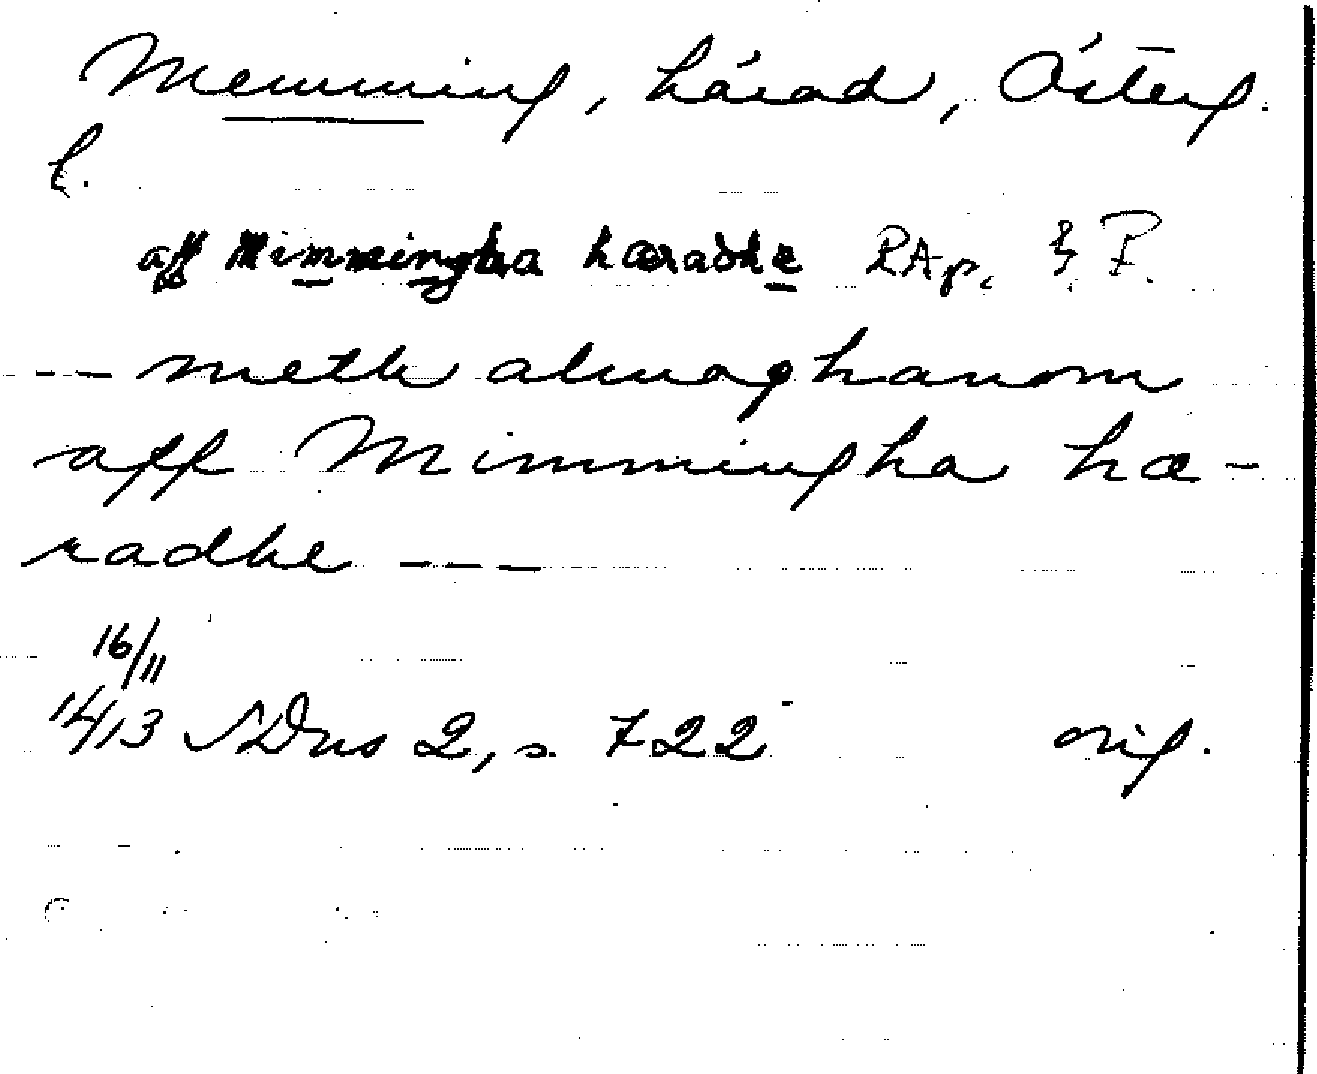 Memming, härad, Österg.
l.
aff Mimmingha hæradhe RAp.
--- meth almoghanom
aff Mimmingha hæ-
radhe ---
16/11
1413 SDns 2, s. 722 orig.